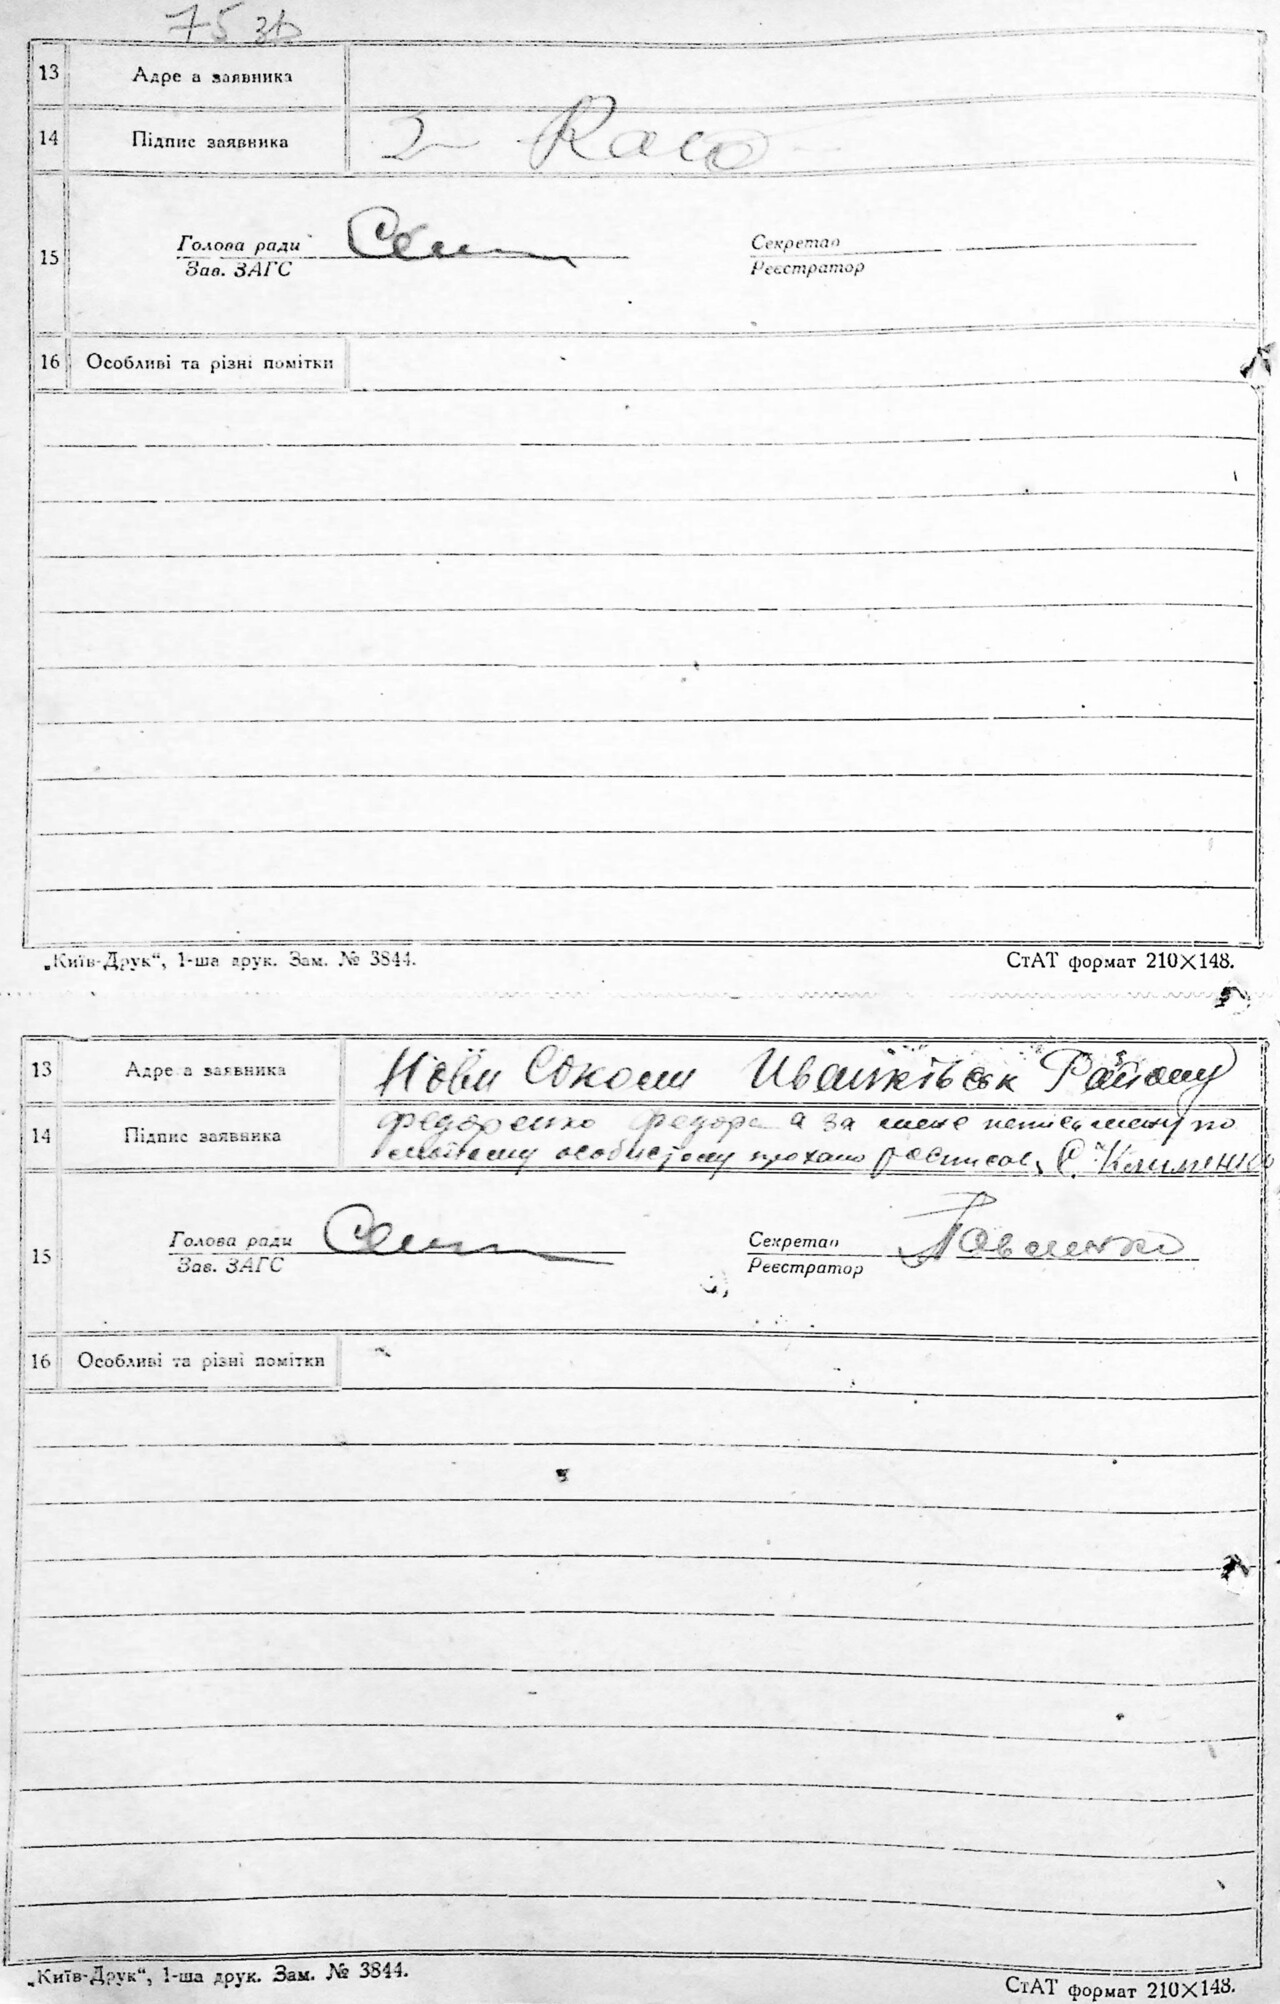 75 зв
13 Адре а заявника
14 Підпис заявника
Голова ради Секретар
15
Зав. ЗАГС Реєстратор
16 Особливі та різні помітки
„Київ-Друк“, 1-ша друк. Зам. № 3844. СтАТ формат 210×148.
13 Адре а заявника Нови Соколи Иванківськ Району
14 Підпис заявника Федоренко Федора а за мене неписьмену по
моїему особистому прохано росписалъ С. Клименко
Голова ради Секретар Павленко
15
Зав. ЗАГС Реєстратор
16 Особливі та різні помітки
„Київ-Друк“, 1-ша друк. Зам. № 3844.
СтАТ формат 210×148.